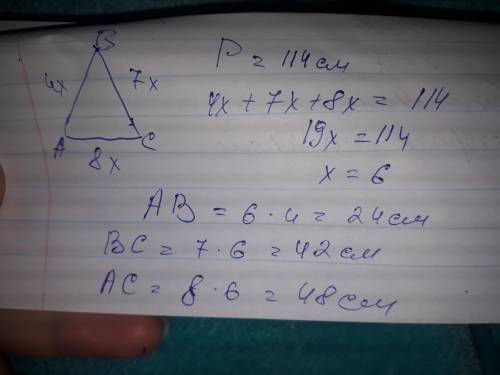 B
4x 7x
A C
8x
P = 114 см
4x + 7x + 8x = 114
19x = 114
x = 6
AB = 6 · 4 = 24 см
BC = 7 · 6 = 42 см
AC = 8 · 6 = 48 см